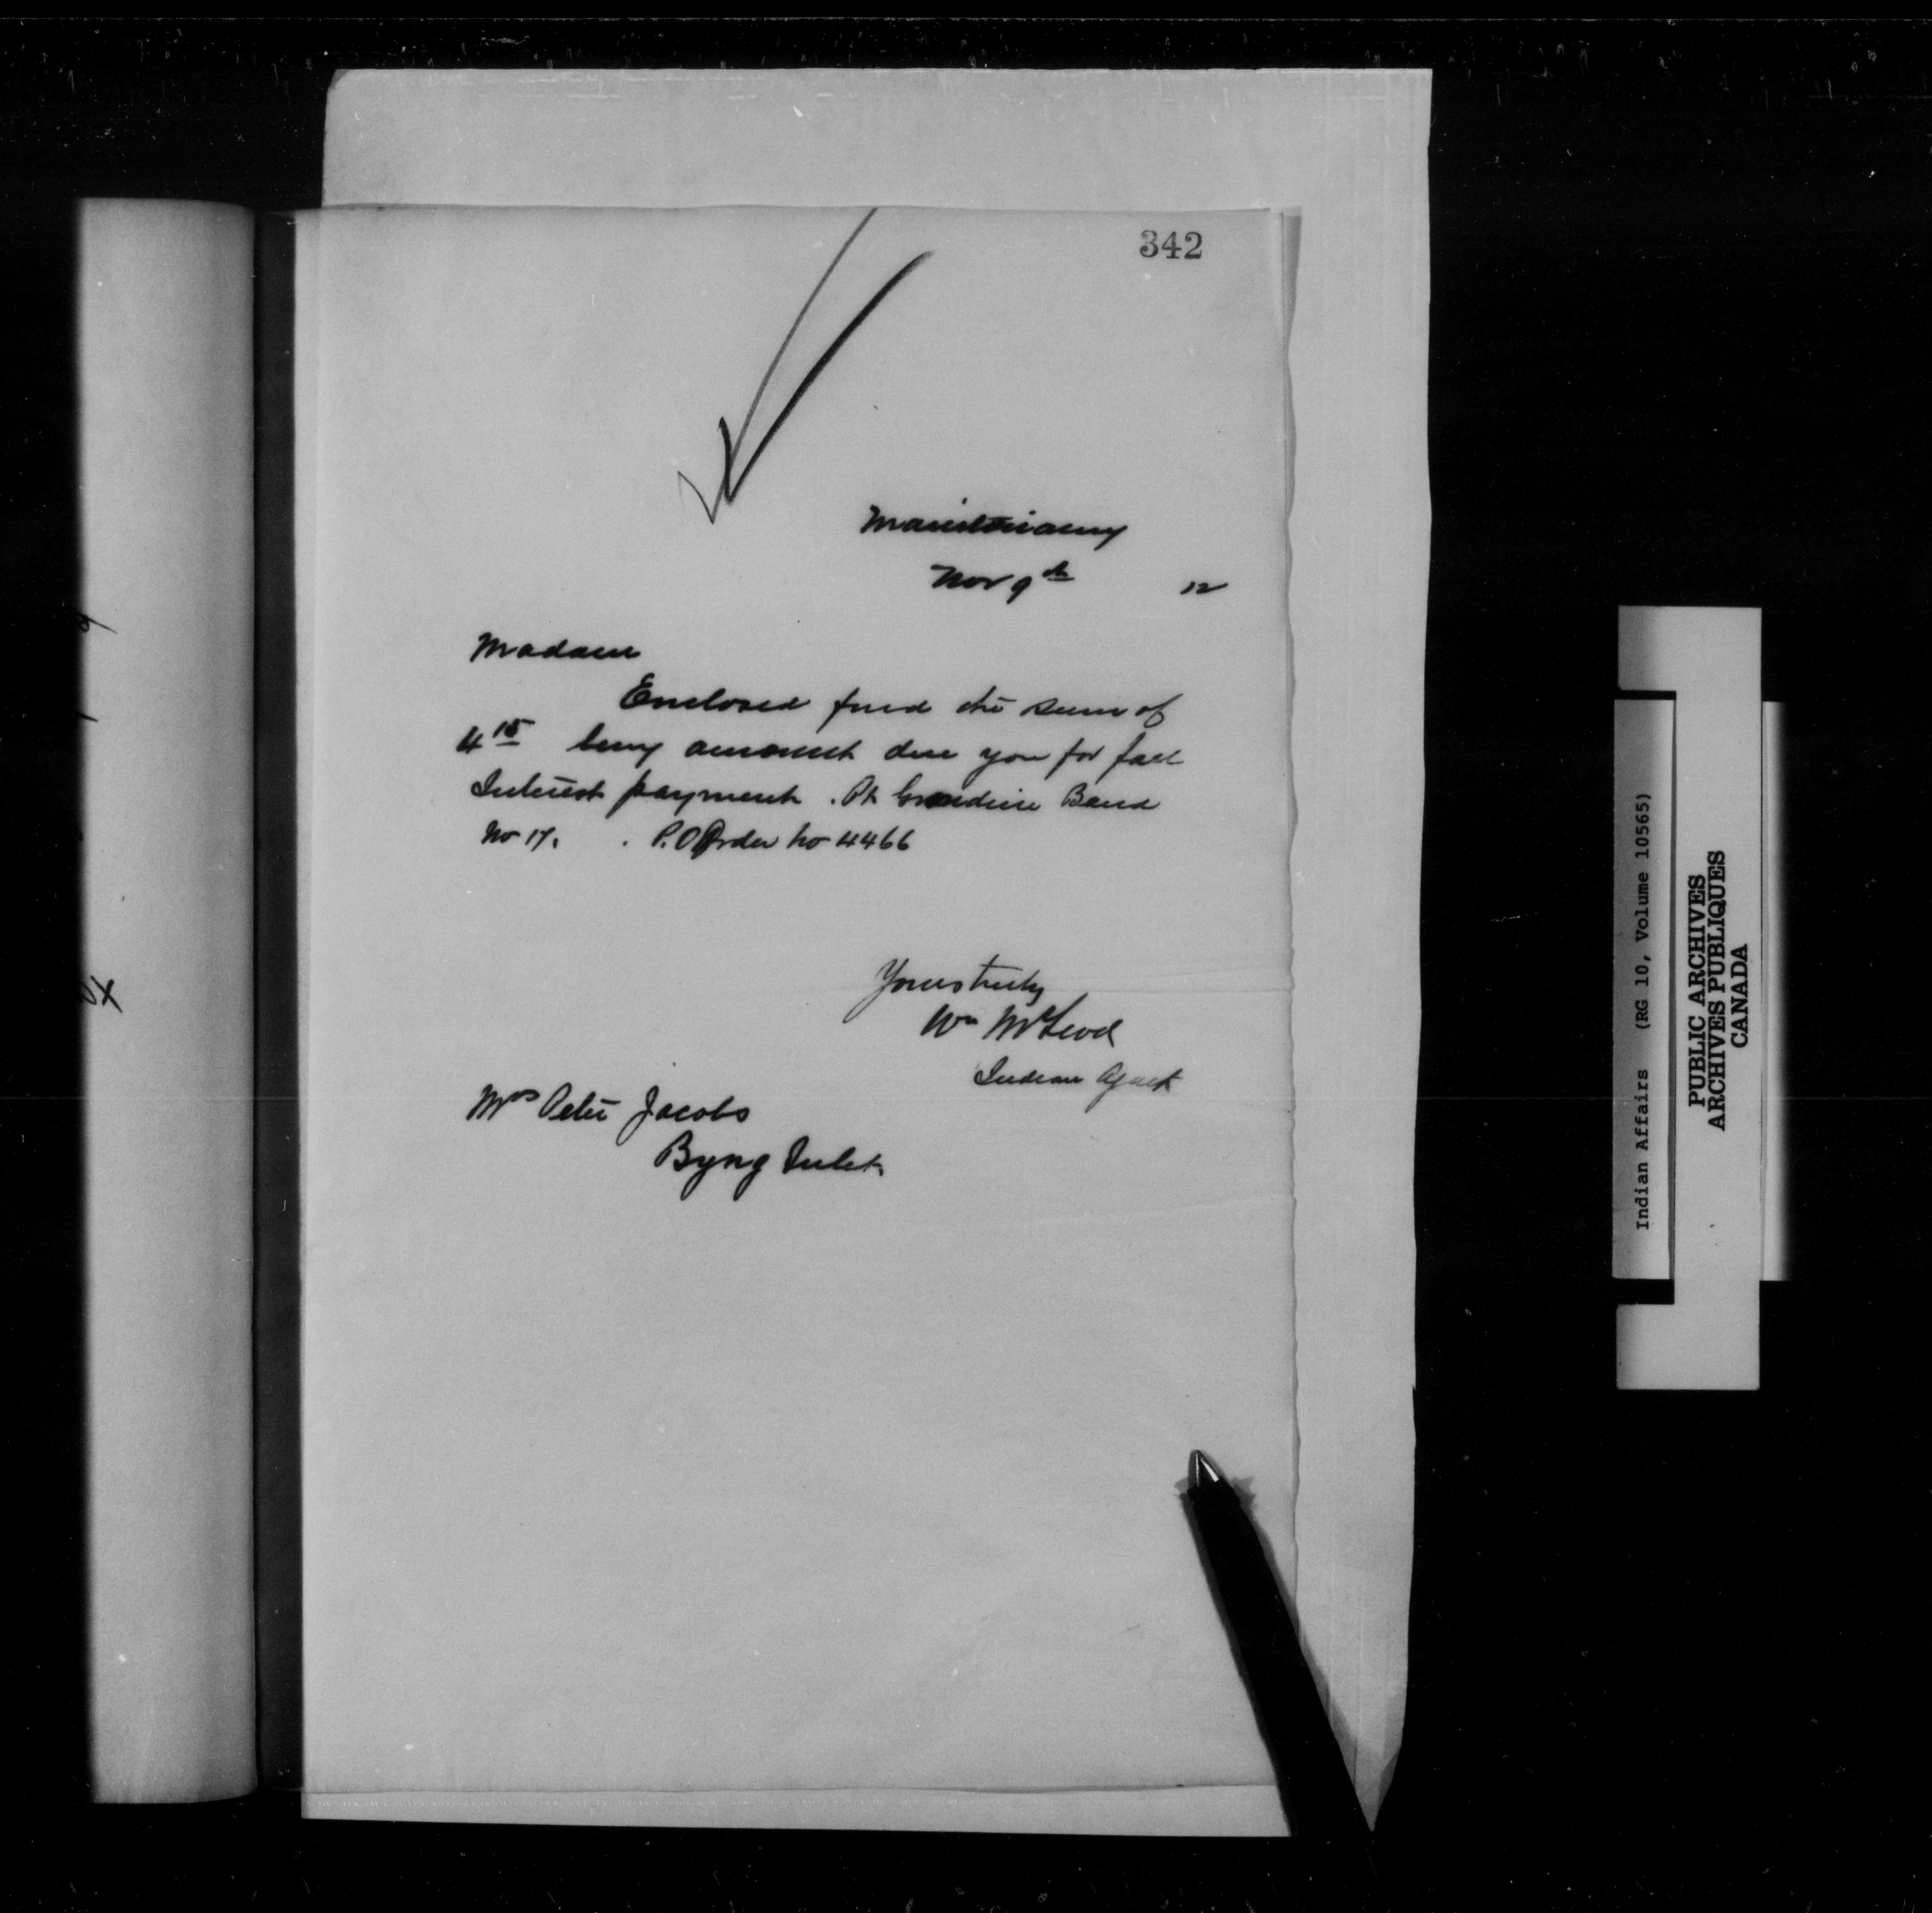 342
Manitowaning
Nov 9th 12
Madam
Enclosed find the sum of
4 15 being amount due you for fall
Interest payment . Pt Grondine Band
No 17. . P.O Order No 4466
Yours truly
Wm McLeod
Indian Agent
Mrs Peter Jacobs
Byng Inlet.
Indian Affairs (RG 10, Volume 10565)
PUBLIC ARCHIVES
ARCHIVES PUBLIQUES
CANADA